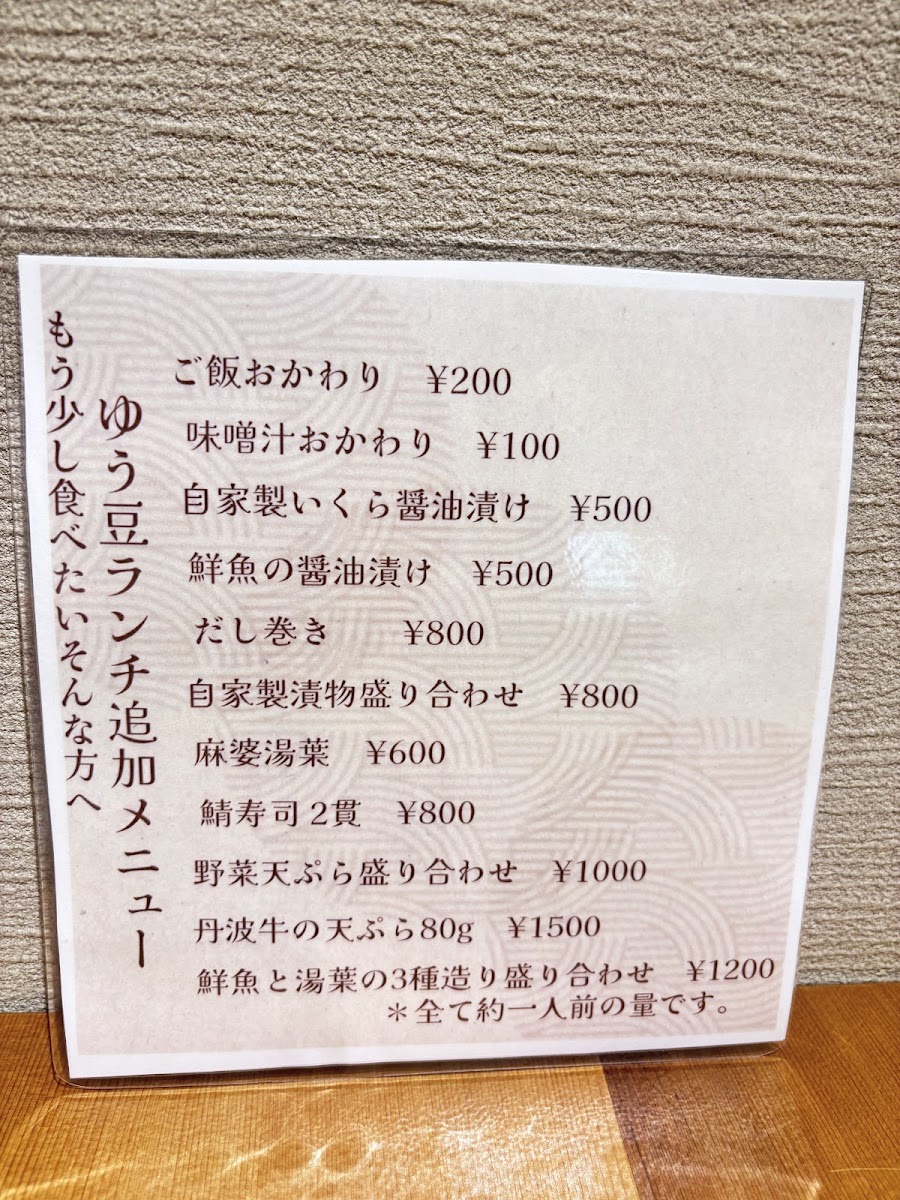 もう少し食べたいそんな方へ
ゆう豆ランチ追加メニュー
ご飯おかわり ¥200
味噌汁おかわり ¥100
自家製いくら醤油漬け ¥500
鮮魚の醤油漬け ¥500
だし巻き ¥800
自家製漬物盛り合わせ ¥800
麻婆湯葉 ¥600
鯖寿司2貫 ¥800
野菜天ぷら盛り合わせ ¥1000
丹波牛の天ぷら80g ¥1500
鮮魚と湯葉の3種造り盛り合わせ ¥1200
＊全て約一人前の量です。